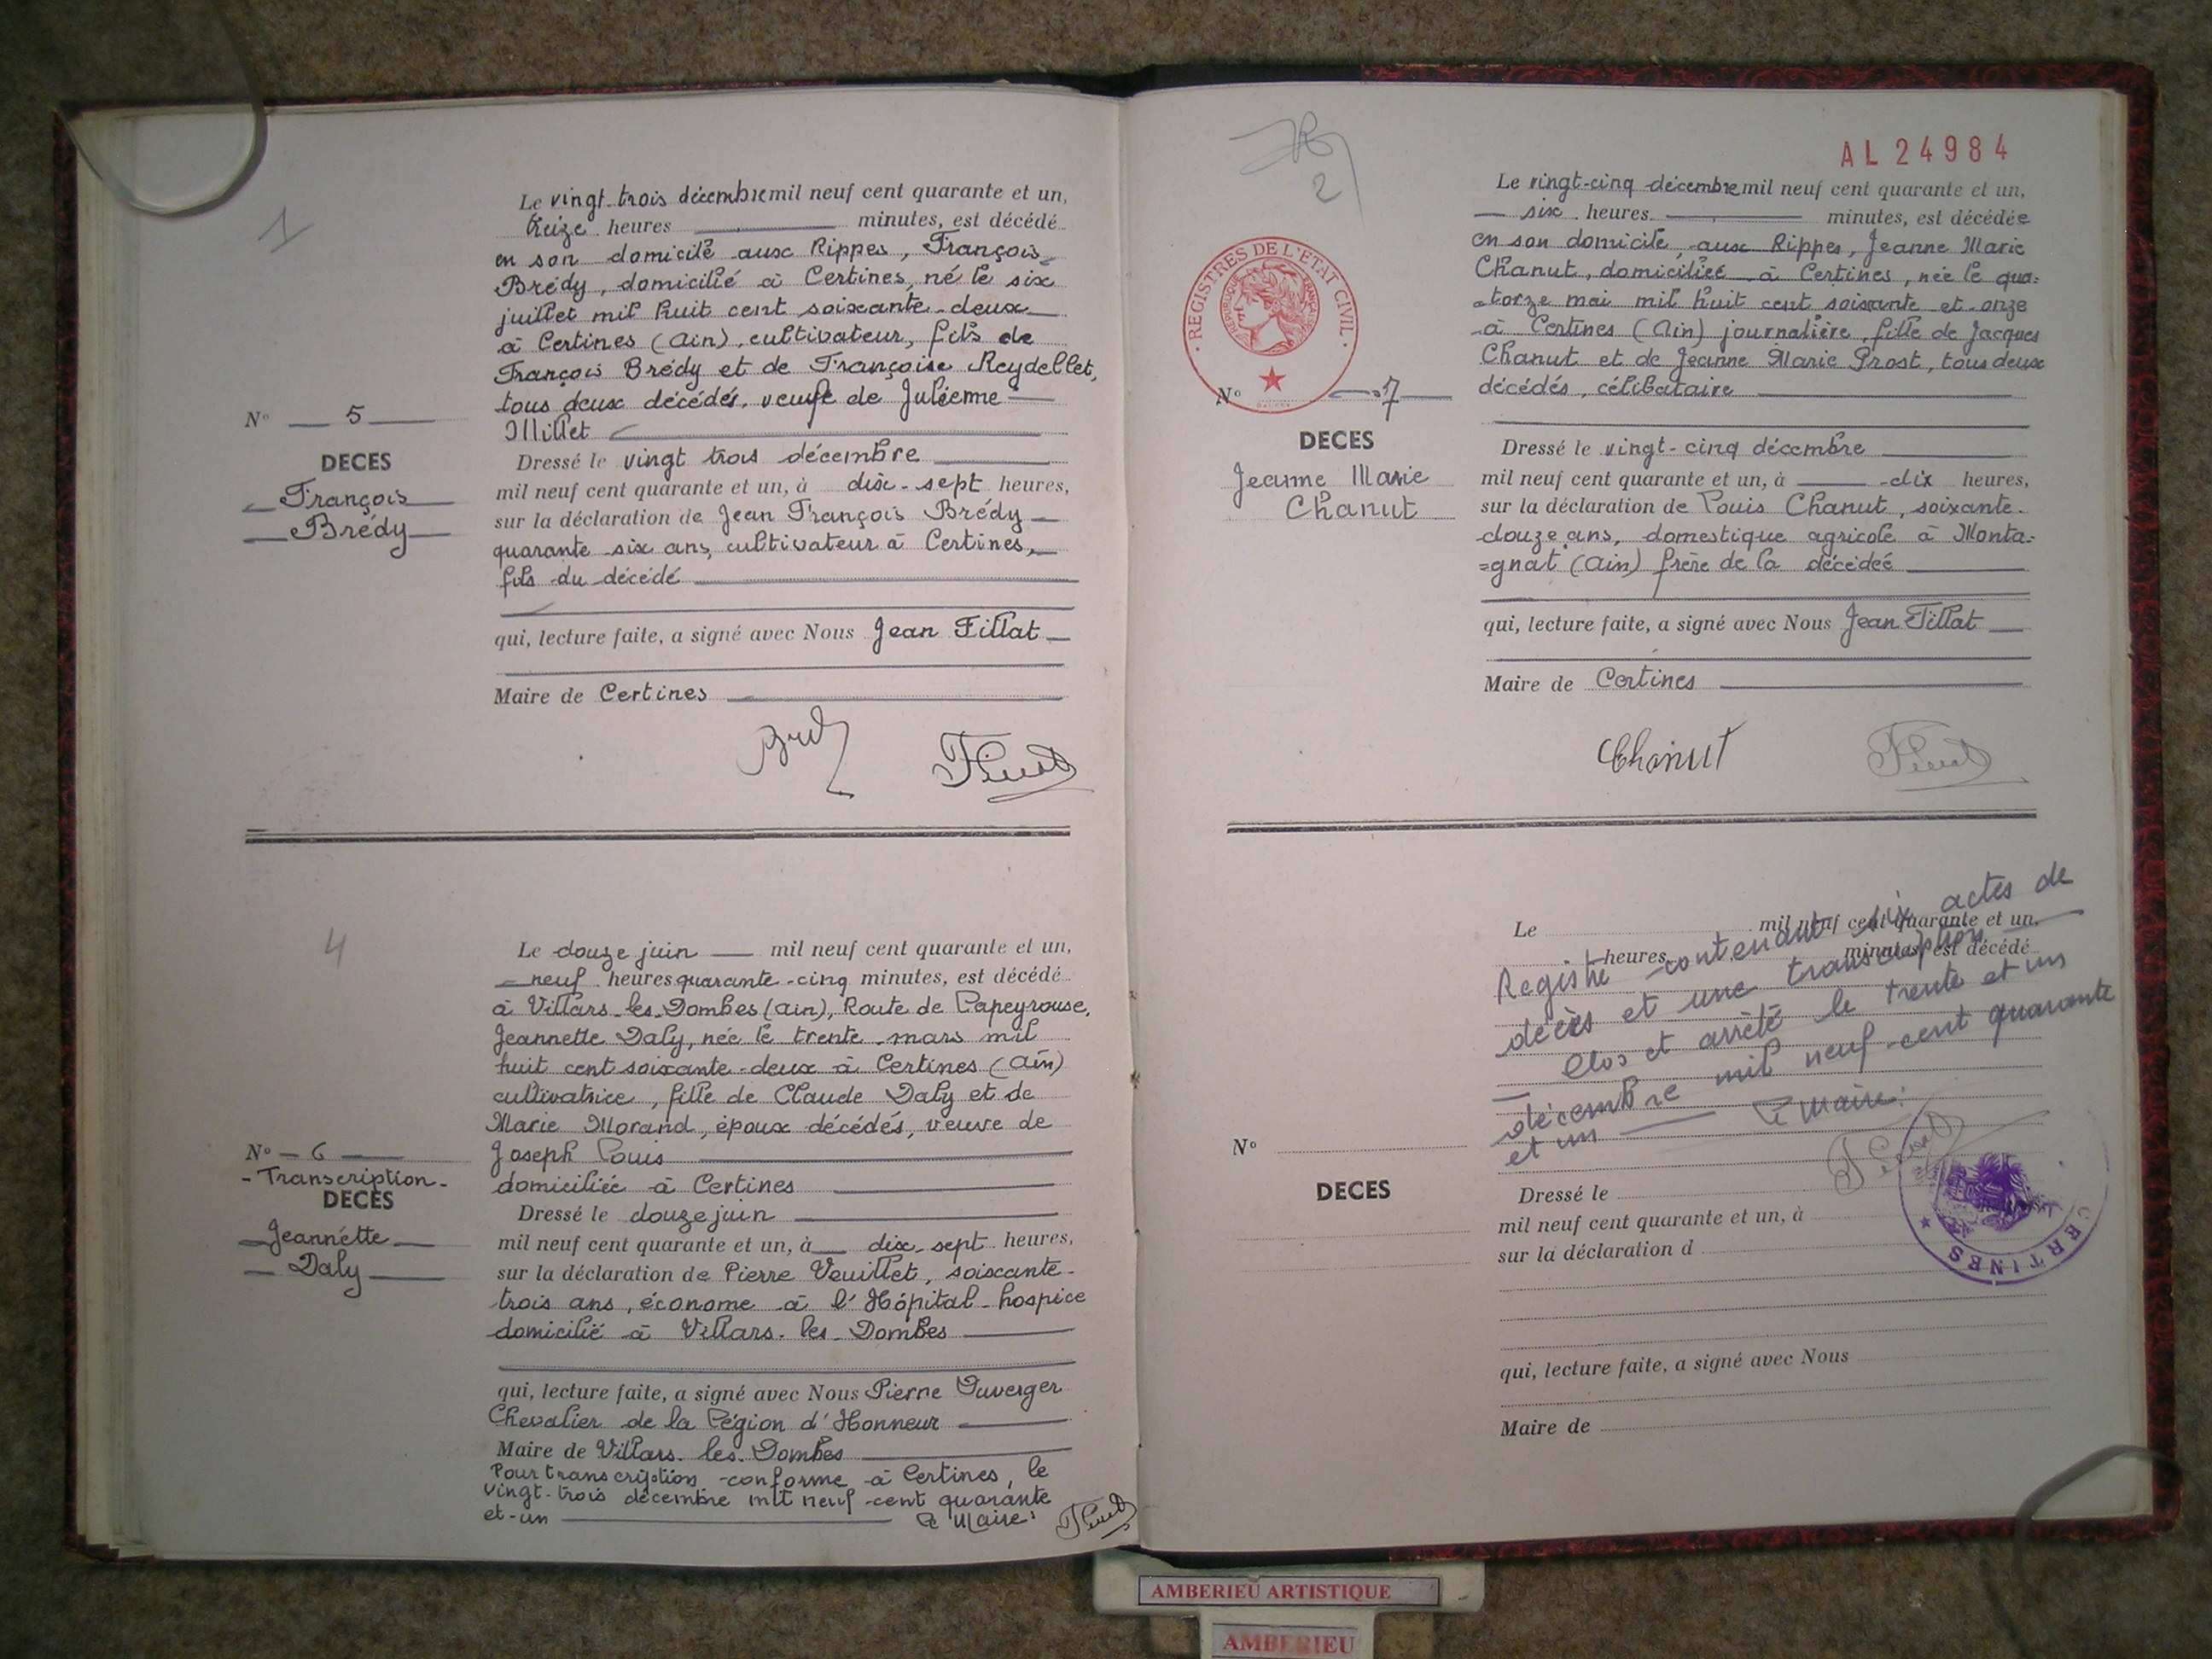 1
Le vingt-trois décembre mil neuf cent quarante et un,
treize heures minutes, est décédé
en son domicile aux Rippes, François
Brédy, domicilié à Certines, né le six
juillet mil huit cent soixante-deux
à Certines (Ain), cultivateur, fils de
François Brédy et de Françoise Reydellet,
tous deux décédés, veuf de Julienne
Millet
Nº 5
DECES
François
Brédy
Dressé le vingt trois décembre
mil neuf cent quarante et un, à dix-sept heures,
sur la déclaration de Jean François Brédy
quarante-six ans, cultivateur à Certines,
fils du décédé
qui, lecture faite, a signé avec Nous Jean Fillat
Maire de Certines
4
Le douze juin mil neuf cent quarante et un,
neuf heures quarante-cinq minutes, est décédé
à Villars-les-Dombes (Ain), Route de Lapeyrouse,
Jeannette Daly, née le trente mars mil
huit cent soixante-deux à Certines (Ain)
cultivatrice, fille de Claude Daly et de
Marie Morand, époux décédés, veuve de
Joseph Louis
domiciliée à Certines
Nº 6
- Transcription -
DECES
Jeannette
Daly
Dressé le douze juin
mil neuf cent quarante et un, à dix-sept heures,
sur la déclaration de Pierre Veuillet, soixante-
trois ans, économe à l'Hôpital-hospice
domicilié à Villars-les-Dombes
qui, lecture faite, a signé avec Nous Pierre Duverger
Chevalier de la Légion d'Honneur
Maire de Villars-les-Dombes
Pour transcription conforme à Certines, le
vingt-trois décembre mil neuf cent quarante
et-un Le Maire:
2
AL 24984
REGISTRES DE L'ETAT CIVIL
REPUBLIQUE FRANÇAISE
Le vingt-cinq décembre mil neuf cent quarante et un,
six heures minutes, est décédée
en son domicile, aux Rippes, Jeanne Marie
Chanut, domiciliée à Certines, née le qua=
torze mai mil huit cent soixante et onze
à Certines (Ain) journalière, fille de Jacques
Chanut et de Jeanne Marie Prost, tous deux
décédés, célibataire
Nº 7
DECES
Jeanne Marie
Chanut
Dressé le vingt-cinq décembre
mil neuf cent quarante et un, à dix heures,
sur la déclaration de Louis Chanut, soixante-
douze ans, domestique agricole à Monta=
=gnat (Ain) frère de la décédée
qui, lecture faite, a signé avec Nous Jean Fillat
Maire de Certines
Chanut
Le mil neuf cent quarante et un,
heures minutes, est décédé
Registre contenant six actes de
décès et une transcription
Clos et arrêté le trente et un
décembre mil neuf-cent quarante
et un Le Maire:
Nº
DECES
Dressé le
mil neuf cent quarante et un, à
sur la déclaration d
CERTINES
qui, lecture faite, a signé avec Nous
Maire de
AMBERIEU ARTISTIQUE
AMBERIEU